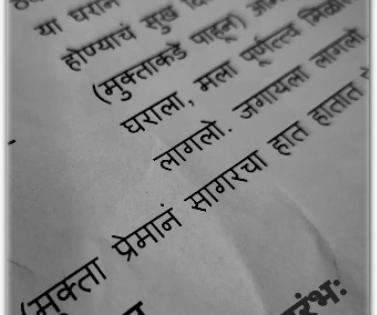 या घरानं
होण्याचं मुख
(मुक्ताकडे पाहून)
घराला, मला पूर्णत्त्व
लागलो. जगायला लागलो
(मुक्ता प्रेमानं सागरचा हात हातात